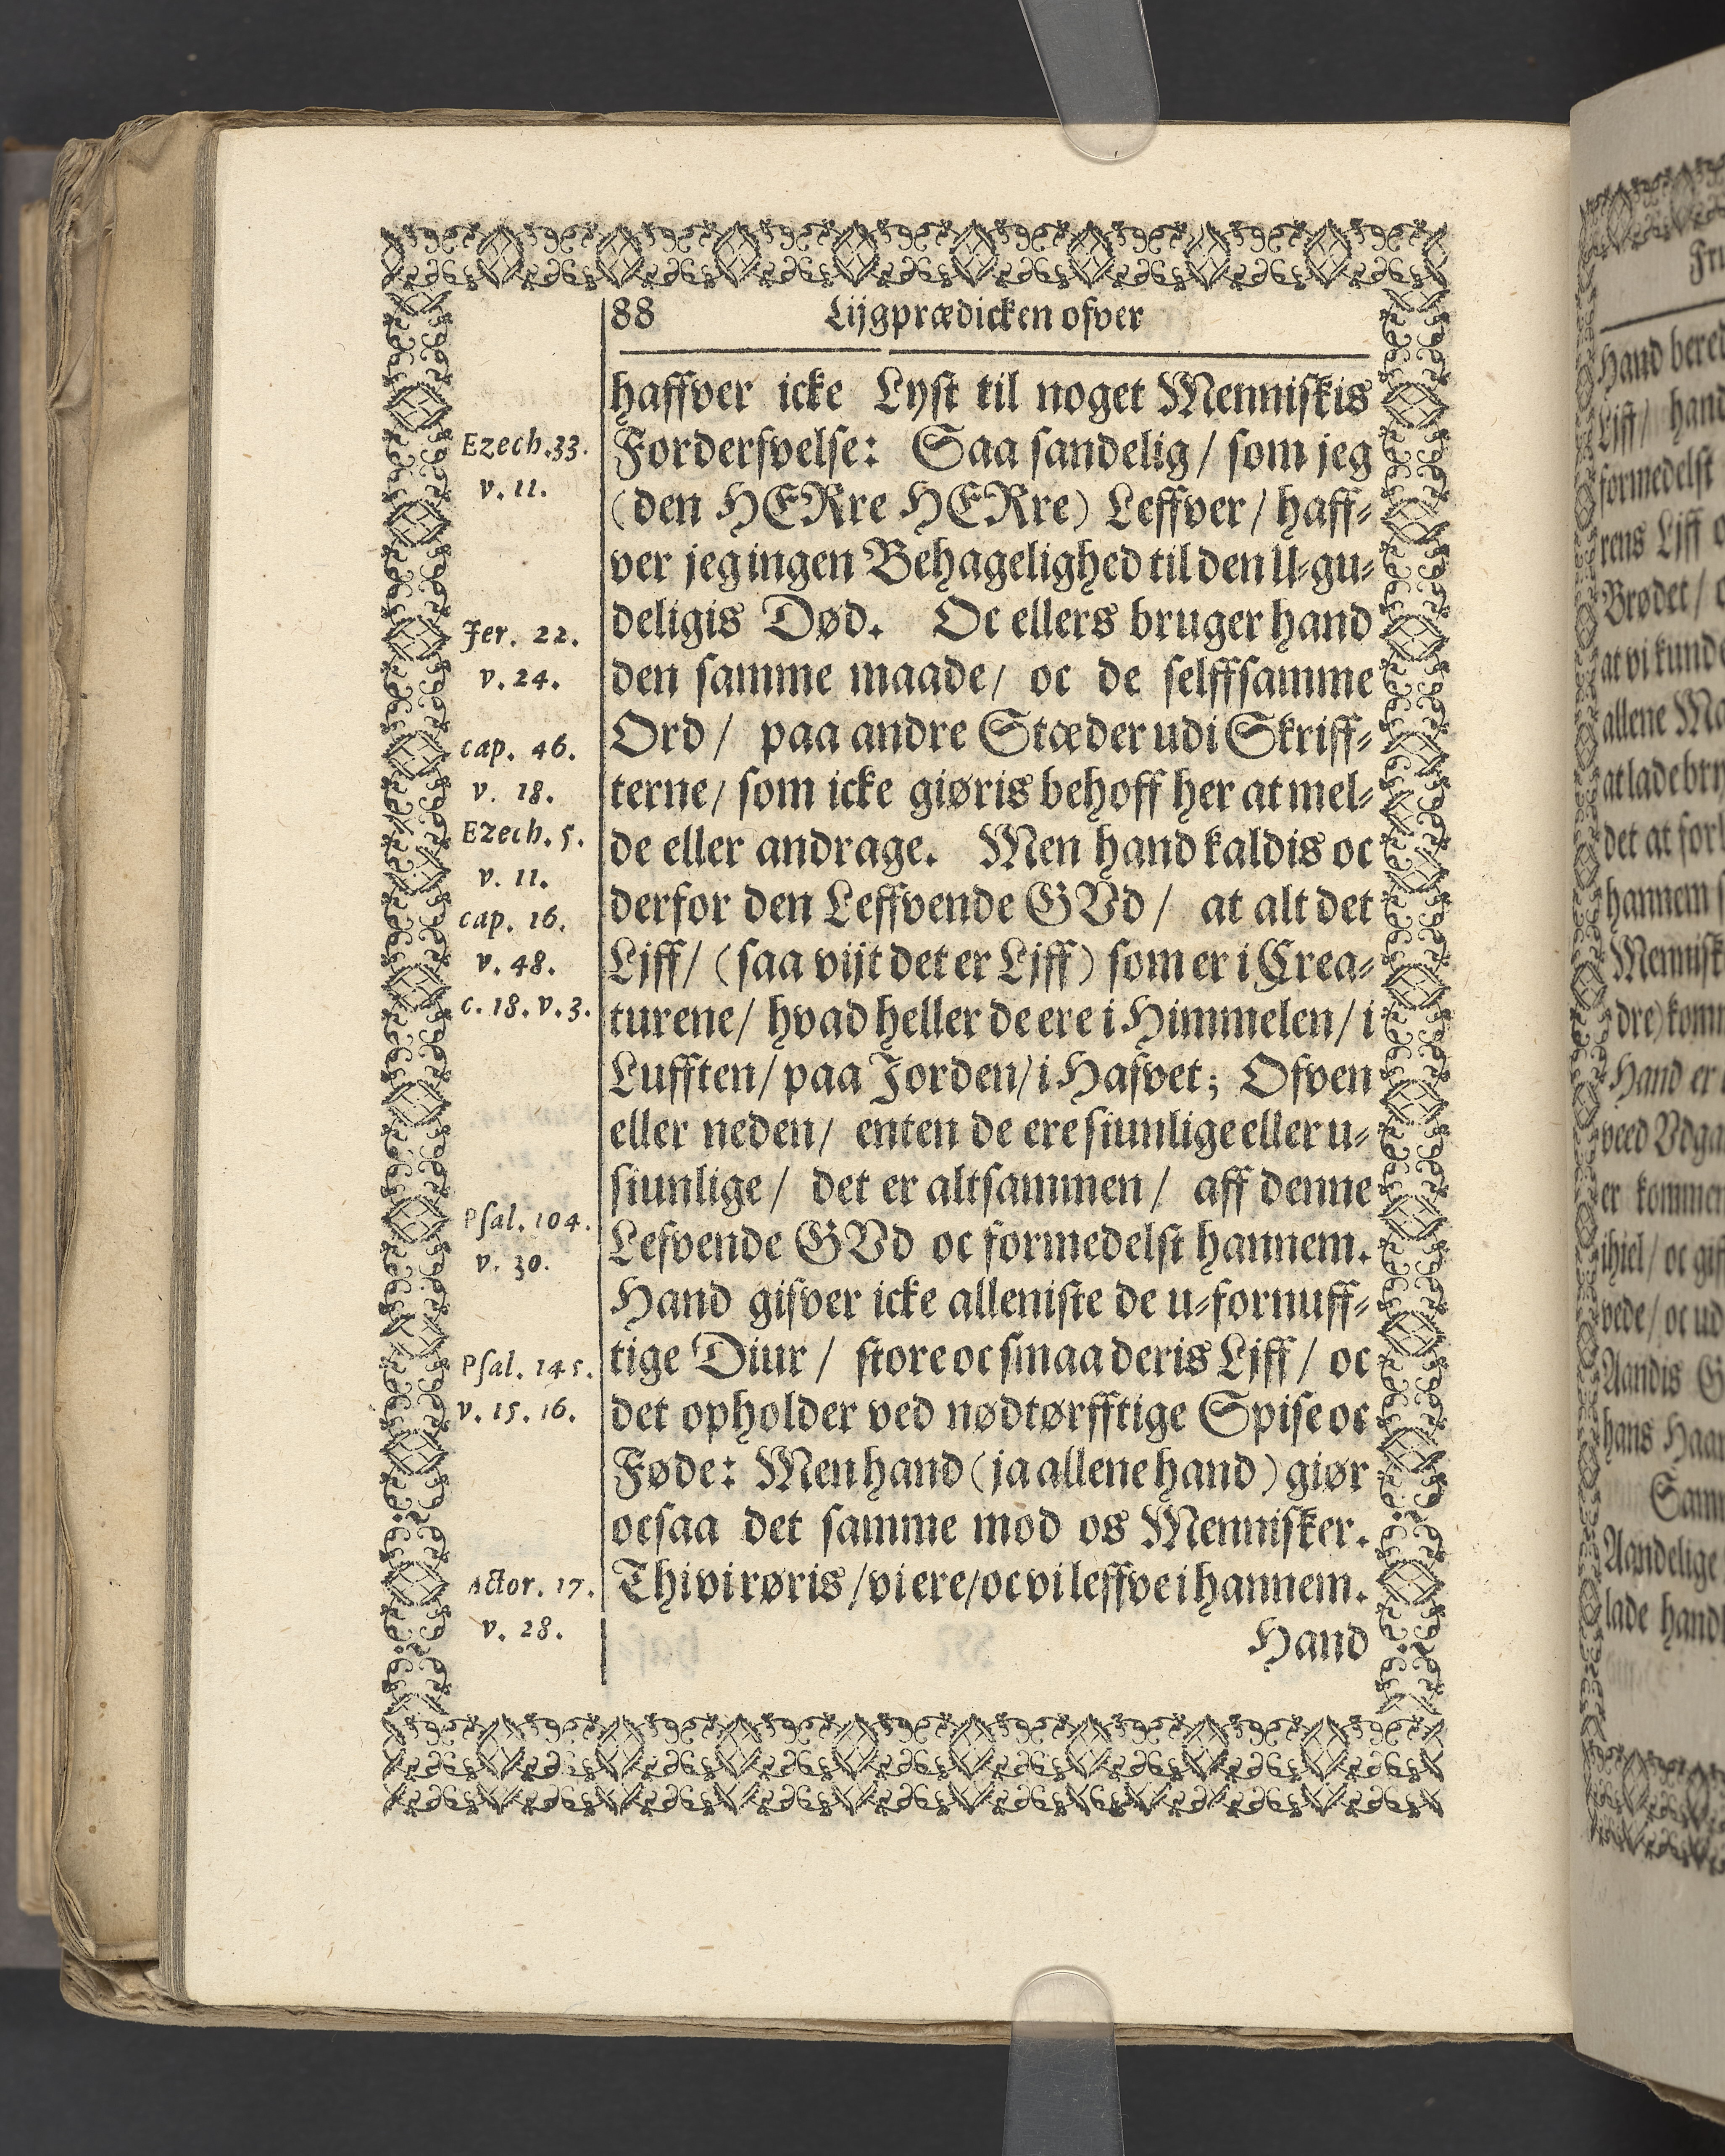 88 Lijgprædicken ofver
haffver icke Lyst til noget Menniskis
Forderfvelse: Saa sandelig / som jeg
(den HERre HERre) Leffver / haff-
ver jeg ingen Behagelighed til den U-gu-
deligis Død. Oc ellers bruger hand
den samme maade / oc de selffsamme
Ord / paa andre Stæder udi Skriff-
terne / som icke giøris behoff her at mel-
de eller andrage. Men hand kaldis oc
derfor den Leffvende GVd / at alt det
Ljff / (saa vijt det er Ljff) som er i Crea-
turene / hvad heller de ere i Himmelen / i
Lufften / paa Jorden / i Hafvet; Ofven
eller neden / enten de ere siunlige eller u-
siunlige / det er altsammen / aff denne
Lefvende GVd oc formedelst hannem.
Hand gifver icke alleniste de u-fornuff-
tige Diur / store oc smaa deris Ljff / oc
det opholder ved nødtørfftige Spise oc
Føde: Men hand (ja allene hand) giør
ocsaa det samme mod os Mennisker.
Thi vi røris / vi ere / oc vi leffve i hannem.
Hand
Ezech. 33.
v. 11.
Jer. 22.
v. 24.
cap. 46.
v. 18.
Ezech. 5.
v. 11.
cap. 16.
v. 48.
c. 18. v. 3.
Psal. 104.
v. 30.
Psal. 145.
v. 15. 16.
Actor. 17.
v. 28.